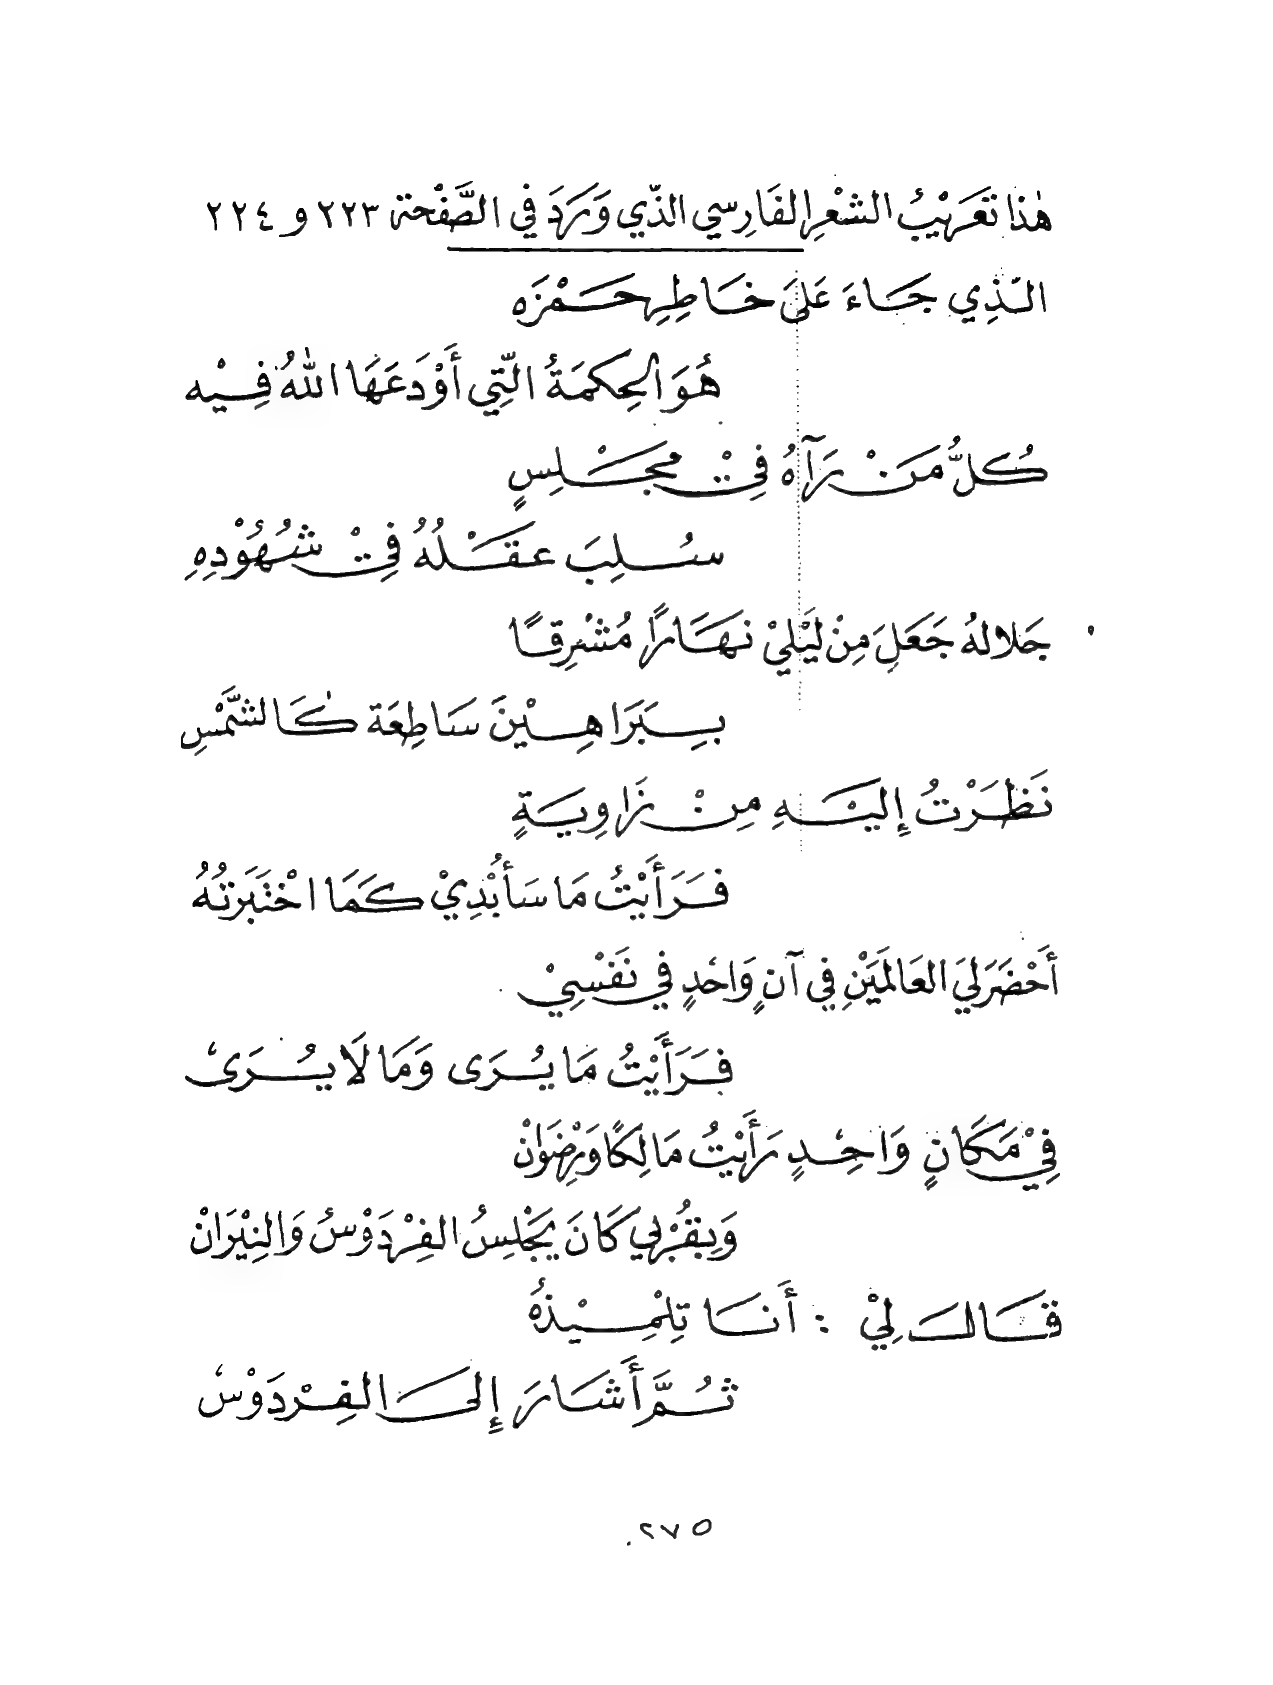 هٰذا تَعَرِيْبُ الشعْرِ الفَارِسي الذّي وَرَدَ في الصَّفْحة ٢٢٣ و ٢٢٤
الـّذِي جَاءَ عَلىَ خَاطِرِ حَمْزَه
هُوَ الحِكمَةُ التِّي أَوْدَعَهَا اللهُ فِيْه
كُلُّ مَنْ رَآهُ فِيْ مجَلِسٍ
سُلِبَ عقَلْهُ فِيْ شُهُوْدِهِ
جَلالهُ جَعَلَ مِنْ لَيْلِيْ نهَارًا مُشْرِقًا
بِبَرَاهِيْنَ سَاطِعَة كَالشَّمْسِ
نَظَرْتُ إِليْهِ مِنْ زَاوِيَةٍ
فَرَأَيْتُ مَا سَأُبْدِيْ كَمَا اخْتَبَرتُهُ
أَحْضَرَ لِيَ العَالمَيْنِ فِي آنٍ وَاحدٍ في نفَسْيِ
فَرَأَيْتُ مَا يُرَى وَمَا لَا يُرَى
فِيْ مَكَانٍ وَاحِدٍ رَأَيْتُ مَالِكًا وَرِضْوَانْ
وَبِقُرْبي كَانَ يَجْلِسُ الفِرْدَوْسُ وَالنِيْرَانْ
قَالَ لِيْ : أَنَا تِلْمِيْذهُ
ثُمَّ أَشَارَ إِلىَ الفِرْدَوْسْ
٢٧٥